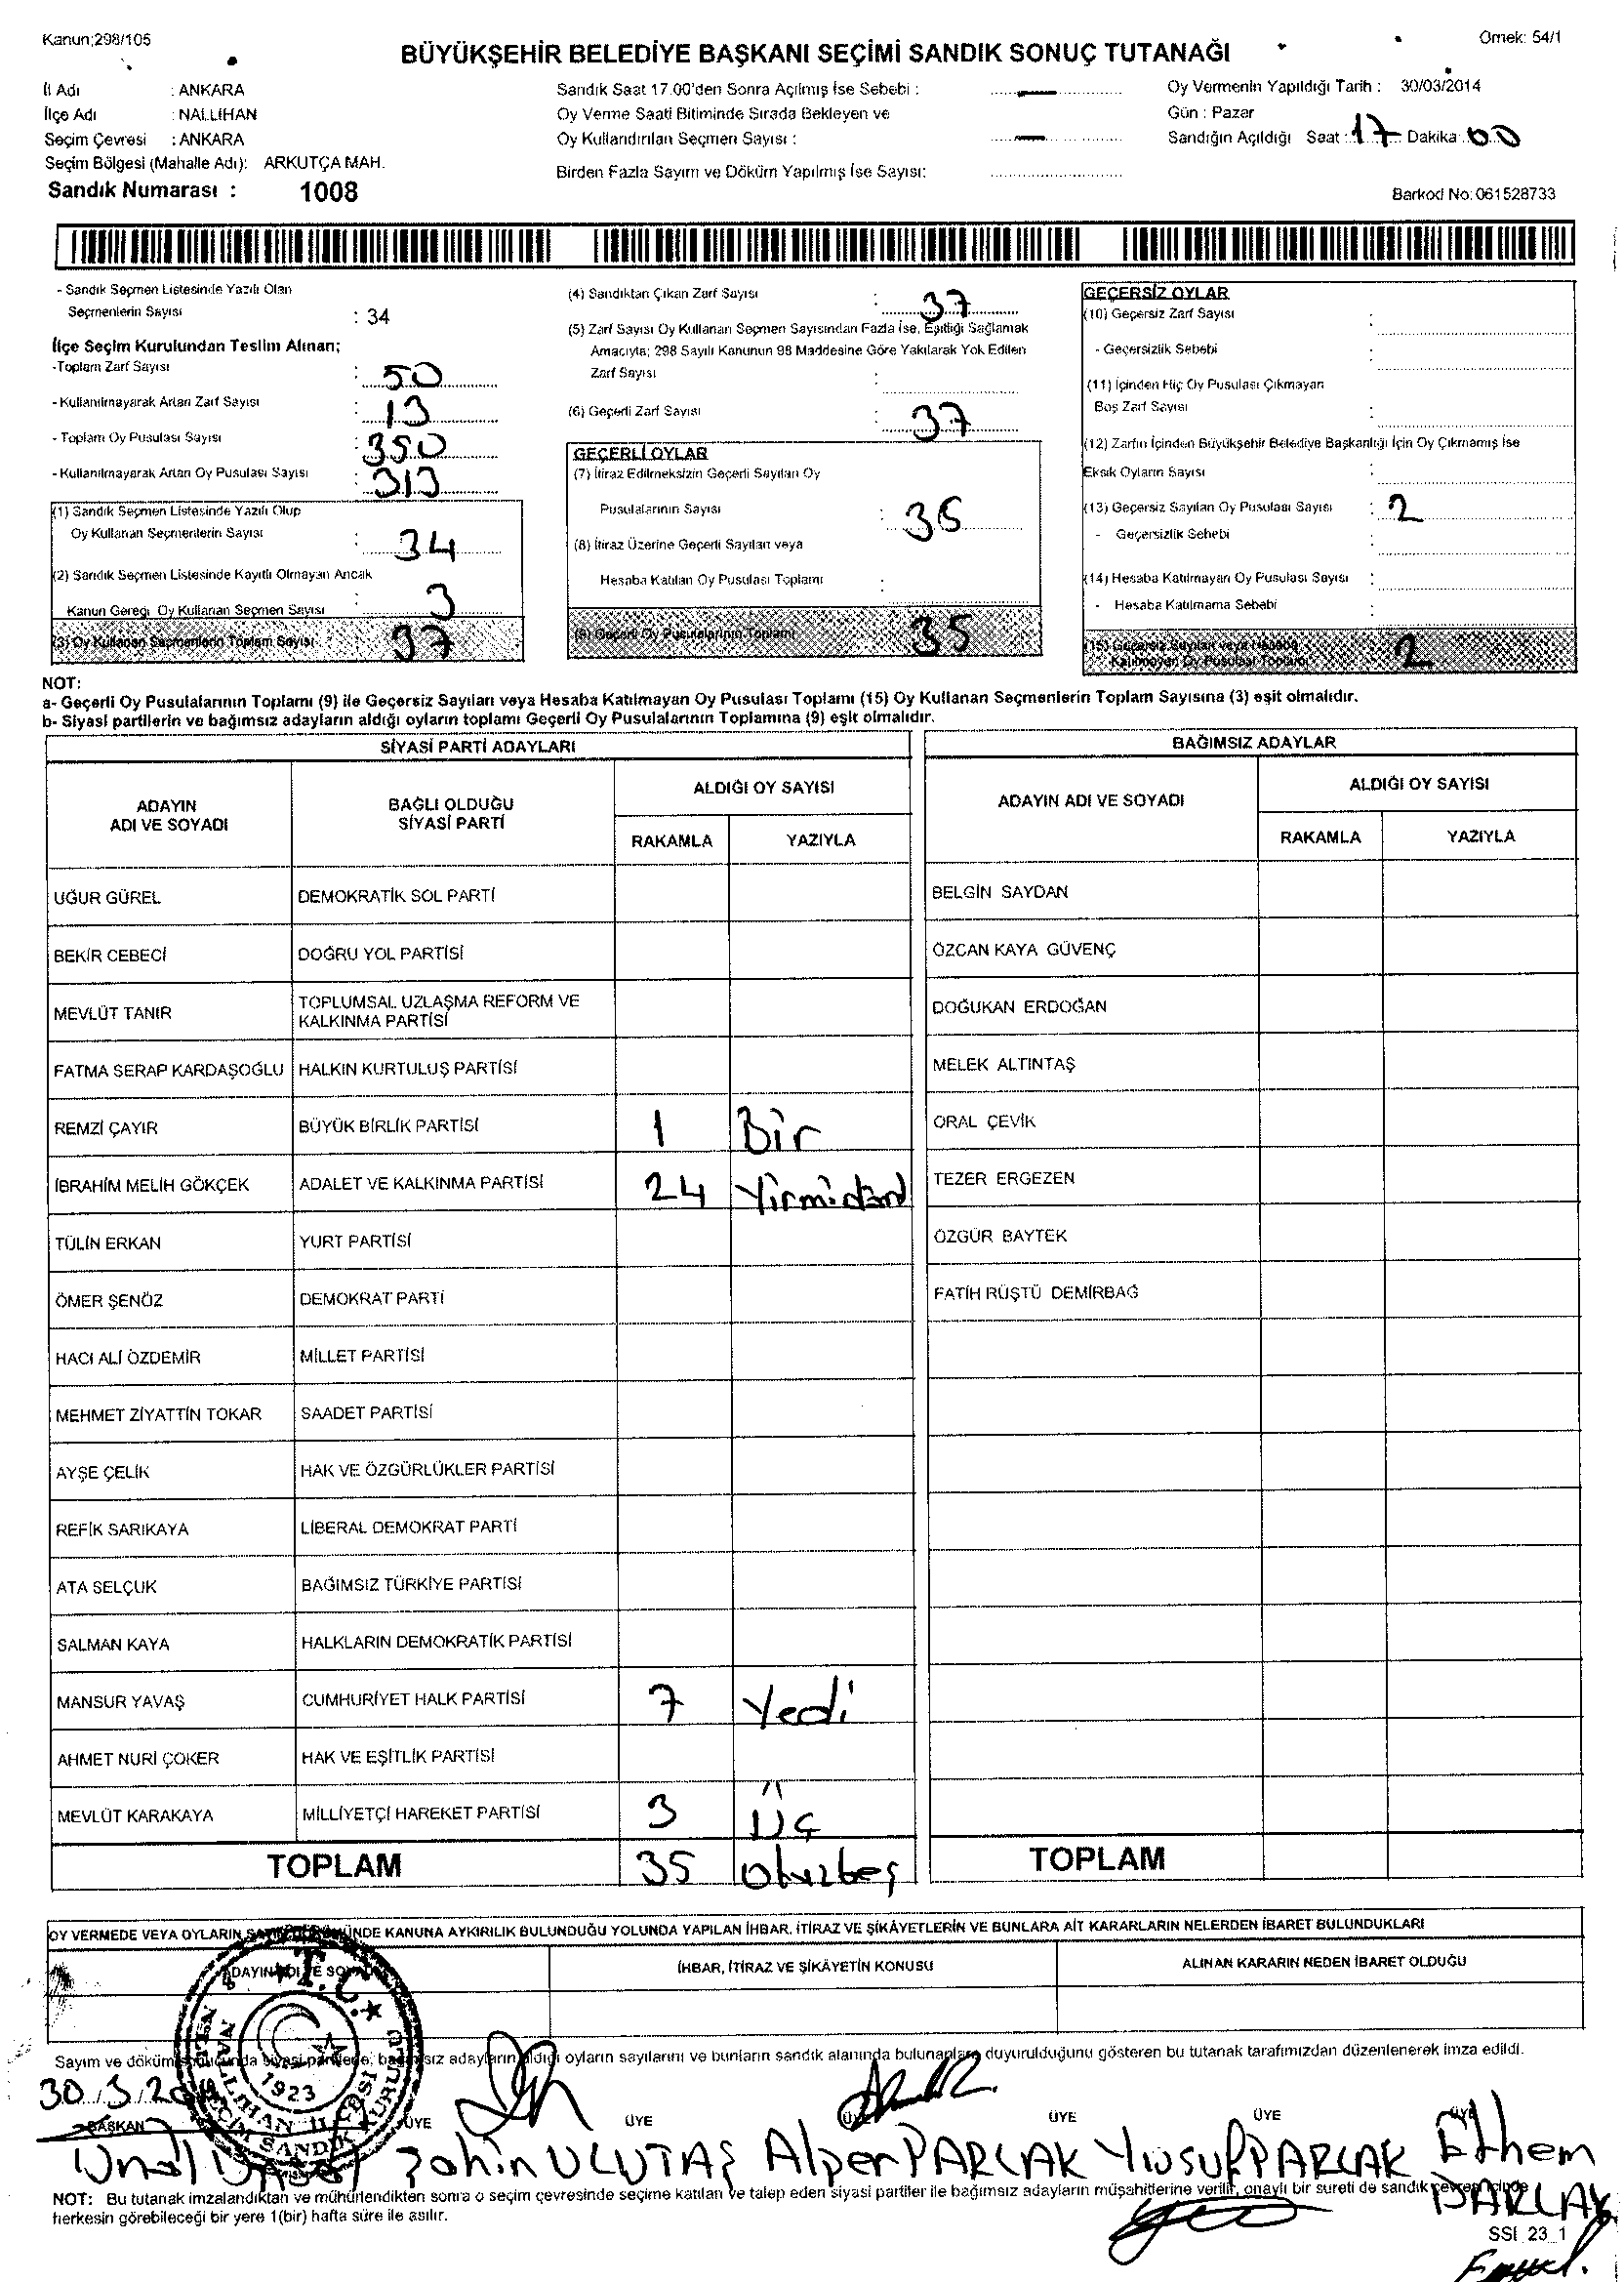 Kanun;298/105
Örnek: 54/1
BÜYÜKŞEHİR BELEDİYE BAŞKANI SEÇİMİ SANDIK SONUÇ TUTANAĞI
İl Adı : ANKARA
İlçe Adı : NALLIHAN
Seçim Çevresi : ANKARA
Seçim Bölgesi (Mahalle Adı): ARKUTÇA MAH.
Sandık Numarası : 1008
Sandık Saat 17.00'den Sonra Açılmış İse Sebebi :
Oy Verme Saati Bitiminde Sırada Bekleyen ve
Oy Kullandırılan Seçmen Sayısı :
Birden Fazla Sayım ve Döküm Yapılmış İse Sayısı:
Oy Vermenin Yapıldığı Tarih : 30/03/2014
Gün : Pazar
Sandığın Açıldığı Saat : 17 Dakika : 00
Barkod No: 061528733
- Sandık Seçmen Listesinde Yazılı Olan
Seçmenlerin Sayısı : 34
İlçe Seçim Kurulundan Teslim Alınan;
-Toplam Zarf Sayısı : 50
- Kullanılmayarak Artan Zarf Sayısı : 13
- Toplam Oy Pusulası Sayısı : 350
- Kullanılmayarak Artan Oy Pusulası Sayısı : 313
(1) Sandık Seçmen Listesinde Yazılı Olup
Oy Kullanan Seçmenlerin Sayısı : 34
(2) Sandık Seçmen Listesinde Kayıtlı Olmayan Ancak
Kanun Gereği Oy Kullanan Seçmen Sayısı : 3
(3) Oy Kullanan Seçmenlerin Toplam Sayısı : 37
(4) Sandıktan Çıkan Zarf Sayısı : 37
(5) Zarf Sayısı Oy Kullanan Seçmen Sayısından Fazla İse, Eşitliği Sağlamak
Amacıyla; 298 Sayılı Kanunun 98 Maddesine Göre Yakılarak Yok Edilen
Zarf Sayısı :
(6) Geçerli Zarf Sayısı : 37
GEÇERLİ OYLAR
(7) İtiraz Edilmeksizin Geçerli Sayılan Oy
Pusulalarının Sayısı : 35
(8) İtiraz Üzerine Geçerli Sayılan veya
Hesaba Katılan Oy Pusulası Toplamı :
(9) Geçerli Oy Pusulalarının Toplamı 35
GEÇERSİZ OYLAR
(10) Geçersiz Zarf Sayısı :
- Geçersizlik Sebebi :
(11) İçinden Hiç Oy Pusulası Çıkmayan
Boş Zarf Sayısı :
(12) Zarfın İçinden Büyükşehir Belediye Başkanlığı İçin Oy Çıkmamış İse
Eksik Oyların Sayısı :
(13) Geçersiz Sayılan Oy Pusulası Sayısı : 2
- Geçersizlik Sebebi :
(14) Hesaba Katılmayan Oy Pusulası Sayısı :
- Hesaba Katılmama Sebebi :
(15) Geçersiz Sayılan veya Hesaba
Katılmayan Oy Pusulası Toplamı 2
NOT:
a- Geçerli Oy Pusulalarının Toplamı (9) ile Geçersiz Sayılan veya Hesaba Katılmayan Oy Pusulası Toplamı (15) Oy Kullanan Seçmenlerin Toplam Sayısına (3) eşit olmalıdır.
b- Siyasi partilerin ve bağımsız adayların aldığı oyların toplamı Geçerli Oy Pusulalarının Toplamına (9) eşit olmalıdır.
SİYASİ PARTİ ADAYLARI
ADAYIN ADI VE SOYADI BAĞLI OLDUĞU SİYASİ PARTİ ALDIĞI OY SAYISI
RAKAMLA YAZIYLA
UĞUR GÜREL DEMOKRATİK SOL PARTİ
BEKİR CEBECİ DOĞRU YOL PARTİSİ
MEVLÜT TANIR TOPLUMSAL UZLAŞMA REFORM VE KALKINMA PARTİSİ
FATMA SERAP KARDAŞOĞLU HALKIN KURTULUŞ PARTİSİ
REMZİ ÇAYIR BÜYÜK BİRLİK PARTİSİ 1 Bir
İBRAHİM MELİH GÖKÇEK ADALET VE KALKINMA PARTİSİ 24 Yirmidörd
TÜLİN ERKAN YURT PARTİSİ
ÖMER ŞENÖZ DEMOKRAT PARTİ
HACI ALİ ÖZDEMİR MİLLET PARTİSİ
MEHMET ZİYATTİN TOKAR SAADET PARTİSİ
AYŞE ÇELİK HAK VE ÖZGÜRLÜKLER PARTİSİ
REFİK SARIKAYA LİBERAL DEMOKRAT PARTİ
ATA SELÇUK BAĞIMSIZ TÜRKİYE PARTİSİ
SALMAN KAYA HALKLARIN DEMOKRATİK PARTİSİ
MANSUR YAVAŞ CUMHURİYET HALK PARTİSİ 7 Yedi
AHMET NURİ ÇOKER HAK VE EŞİTLİK PARTİSİ
MEVLÜT KARAKAYA MİLLİYETÇİ HAREKET PARTİSİ 3 Üç
TOPLAM 35 Otuzbeş
BAĞIMSIZ ADAYLAR
ADAYIN ADI VE SOYADI ALDIĞI OY SAYISI
RAKAMLA YAZIYLA
BELGİN SAYDAN
ÖZCAN KAYA GÜVENÇ
DOĞUKAN ERDOĞAN
MELEK ALTINTAŞ
ORAL ÇEVİK
TEZER ERGEZEN
ÖZGÜR BAYTEK
FATİH RÜŞTÜ DEMİRBAĞ
TOPLAM
OY VERMEDE VEYA OYLARIN KANUNA AYKIRILIK BULUNDUĞU YOLUNDA YAPILAN İHBAR, İTİRAZ VE ŞİKÂYETLERİN VE BUNLARA AİT KARARLARIN NELERDEN İBARET BULUNDUKLARI
ADAYIN ADI VE SOYADI İHBAR, İTİRAZ VE ŞİKÂYETİN KONUSU ALINAN KARARIN NEDEN İBARET OLDUĞU
T.C.
1923
Sayım ve döküm sonucunda siyasi partilerle, bağımsız adayların aldığı oyların sayılarını ve bunların sandık alanında bulunanlara duyurulduğunu gösteren bu tutanak tarafımızdan düzenlenerek imza edildi.
30.3.2014
BAŞKAN ÜYE ÜYE ÜYE ÜYE ÜYE ÜYE
Ünal Şahin ULUTAŞ Alper PARLAK Yusuf PARLAK Ethem PARLAK
NOT: Bu tutanak imzalandıktan ve mühürlendikten sonra o seçim çevresinde seçime katılan ve talep eden siyasi partiler ile bağımsız adayların müşahitlerine verilir, onaylı bir sureti de sandık çevresi içinde
herkesin görebileceği bir yere 1(bir) hafta süre ile asılır.
SSI_23_1